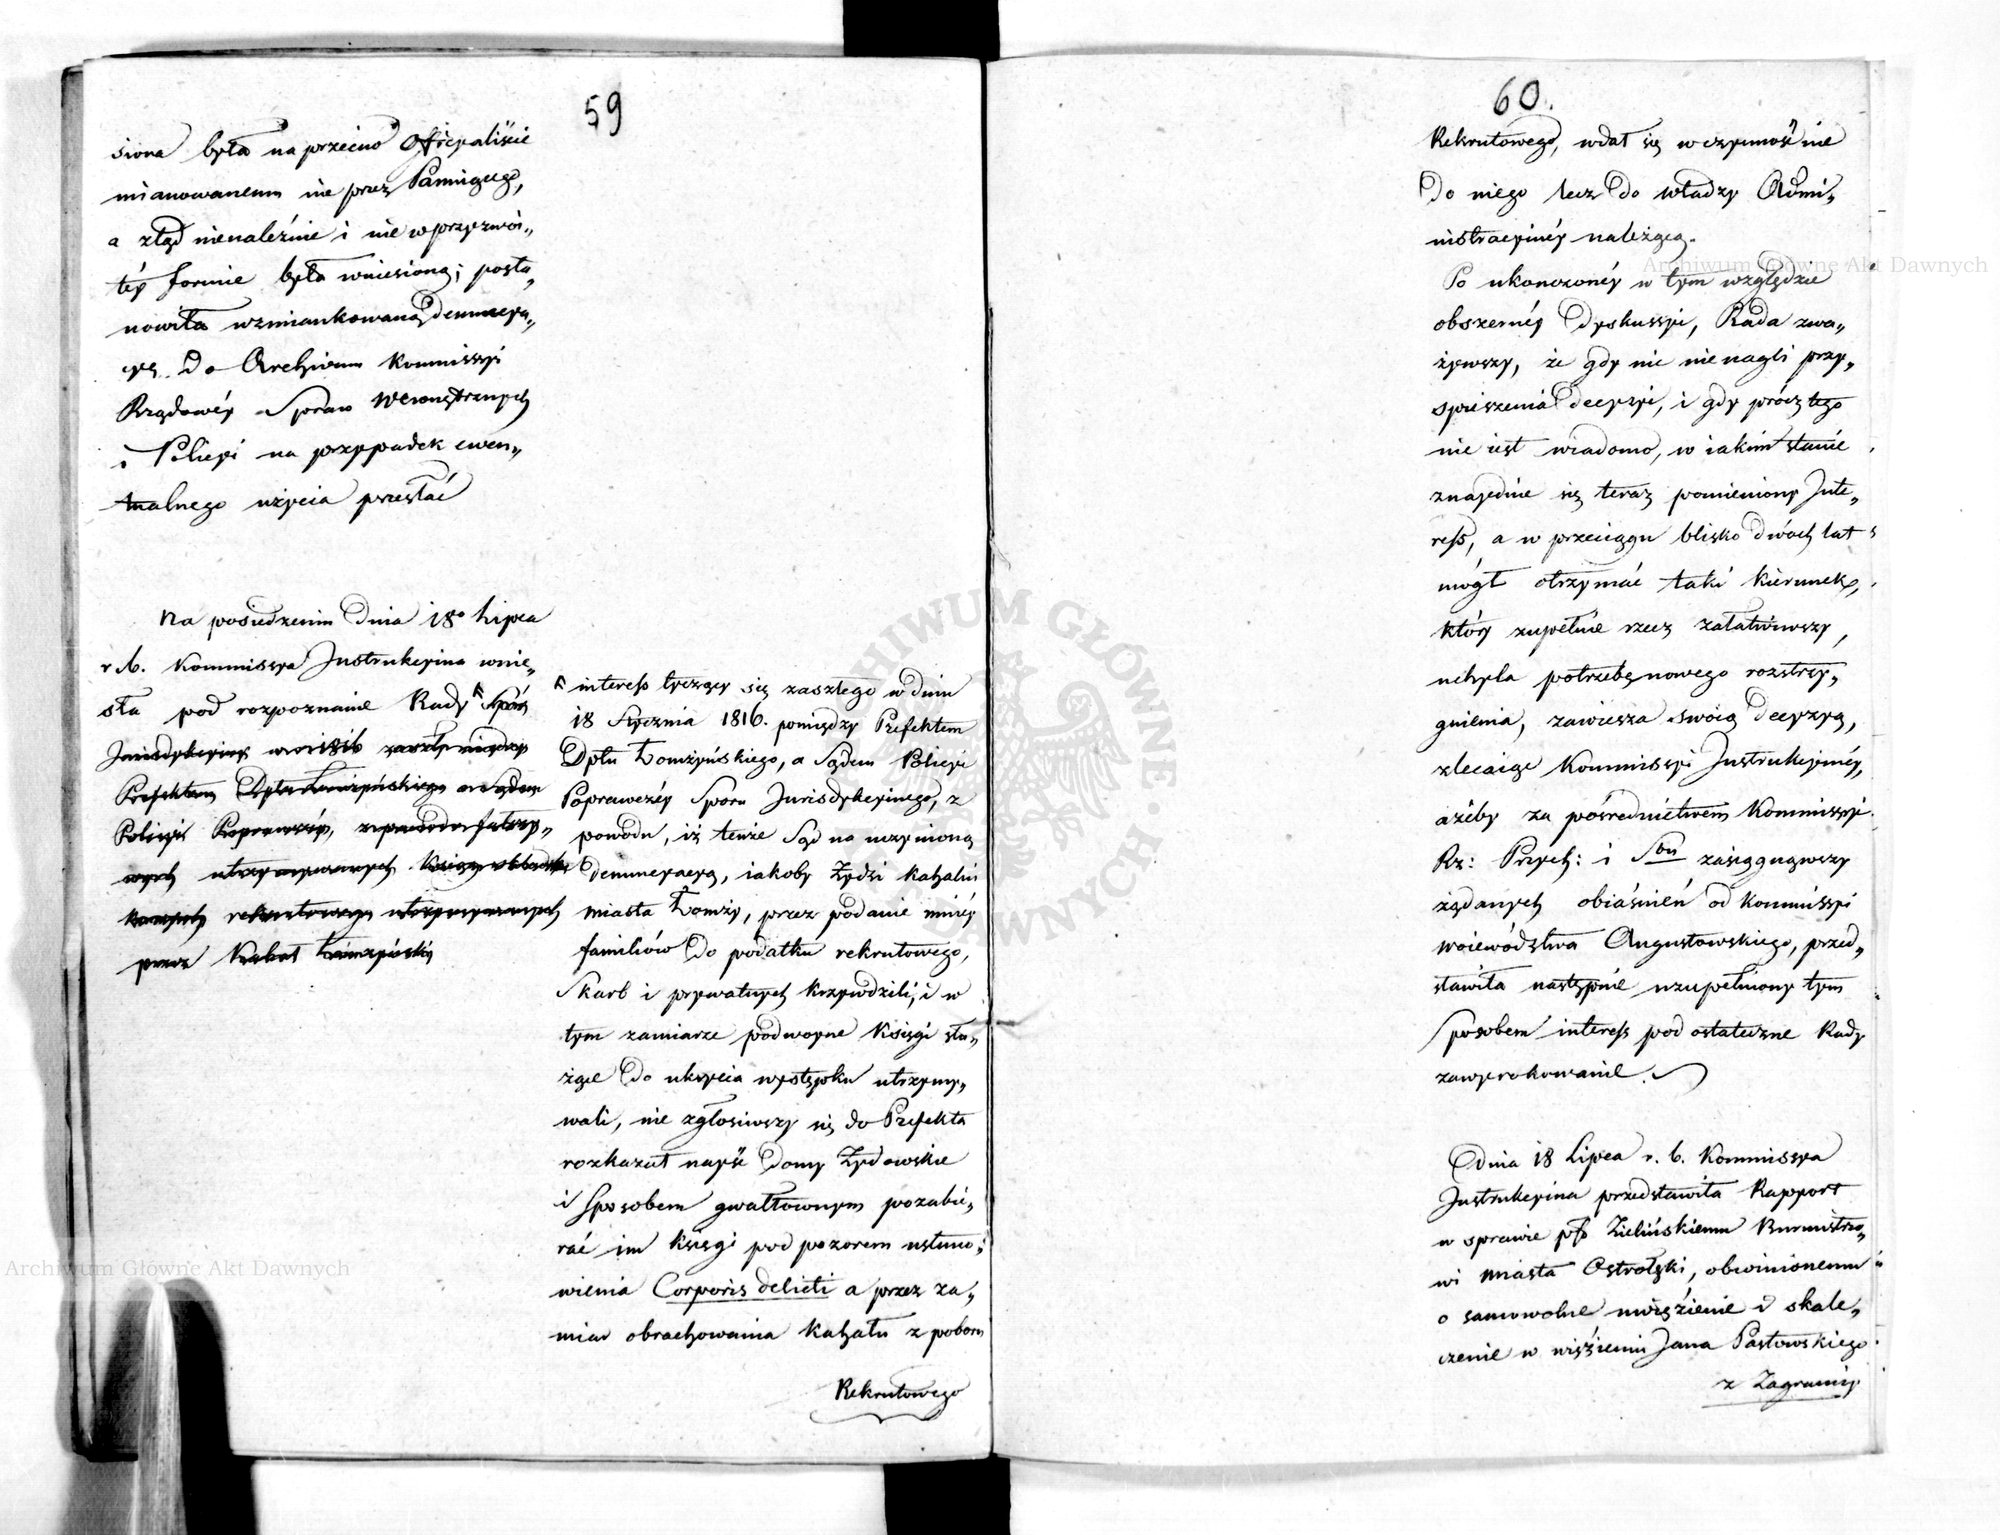 59
siona była na przeciw Officyaliście
mianowanemu nie przez Panuiącego,
a ztąd nienależnie i nie w przyzwoi„
téy formie była wniesioną; posta„
nowiła wzmiankowaną denuncya„
cyą do Archiwum Kommissyi
Rządowéy Spraw Wewnętrznych
i Policyi na przypadek ewen„
tualnego użycia przesłać
Na posiedzeniu Dnia 18º Lipca
r. b. Kommissya Instrukcyina wnie„
sła pod rozpoznanie Rady Spór
Jurisdykcyiny w 1816 zaszły między
Prefektem Dptu Łomżyńskiego a Sądem
Policyi Poprawczéy, z powodu fałszy„
wych utrzymywanych Księgi
rekrutowego utrzymywanych
przez Kahał Łomżyński
interess tyczący się zaszłego w dniu
18 Stycznia 1816. pomiędzy Prefektem
Dptu Łomżyńskiego, a Sądem Policyi
Poprawczéy Sporu Jurisdykcyinego, z
powodu, iż tenże Sąd na uczynioną
denuncyacyą, iakoby Żydzi kahalni
miasta Łomży, przez podanie mniéy
familiów do podatku rekrutowego,
Skarb i prywatnych krzywdzili, i w
tym zamiarze podwoyne Księgi słu„
żące do ukrycia występku utrzymy„
wali, nie zgłosiwszy się do Prefekta
rozkazał nayść Domy Żydowskie
i Sposobem gwałtownym pozabie„
rać im księgi pod pozorem ustano„
wienia Corporis delicti a przez za„
miar obrachowania Kahału z poboru
Rekrutowego
60.
Rekrutowego, wdał się w czynność nie
do niego lecz do władzy Admi„
nistracyinéy należącą.
Po ukończonéy w tym względzie
obszernéy Dyskussyi, Rada zwa„
żywszy, że gdy nic nie nagli przy„
spieszenia decyzyi, i gdy prócz tego
nie iest wiadomo, w iakim stanie
znayduie się teraz pomieniony Inte„
ress, a w przeciągu blisko dwóch lat
mógł otrzymać taki kierunek,
który zupełnie rzecz załatwiwszy,
uchyla potrzebę nowego rozstrzy„
gnienia, zawiesza swoią decyzyą,
zlecaiąc Kommissyi Instrukcyinéy,
ażeby za pośrednictwem Kommissyi
Rz: Przych: i Sbu zasiągnąwszy
żądanych obiaśnień od Kommissyi
Woiewództwa Augustowskiego, przed„
stawiła następnie uzupełniony tym
Sposobem interess pod ostateczne Rady
zawyrokowanie.
Dnia 18 Lipca r. b. Kommissya
Instrukcyina przedstawiła Rapport
w sprawie pko Zielińskiemu Burmistrzo„
wi miasta Ostrołęki, obwinionemu
o samowolne uwięzienie i skale„
czenie w więzieniu Jana Pastowskiego
z Zagranicy
ARCHIWUM GŁÓWNE AKT DAWNYCH
Archiwum Główne Akt Dawnych
Archiwum Główne Akt Dawnych